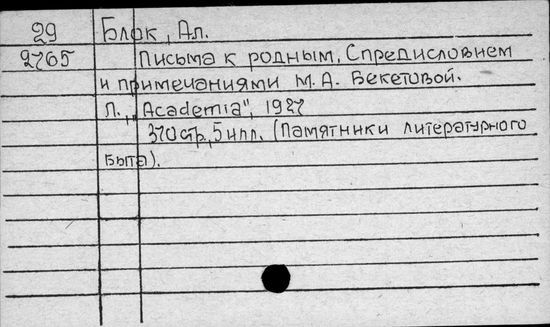 29 Блок, Ал.
2765 Письма к родным. С предисловием
и примечаниями М. А. Бекетовой.
Л., „Academia", 1927
370 стр., 5 илл. (Памятники литературного
быта).